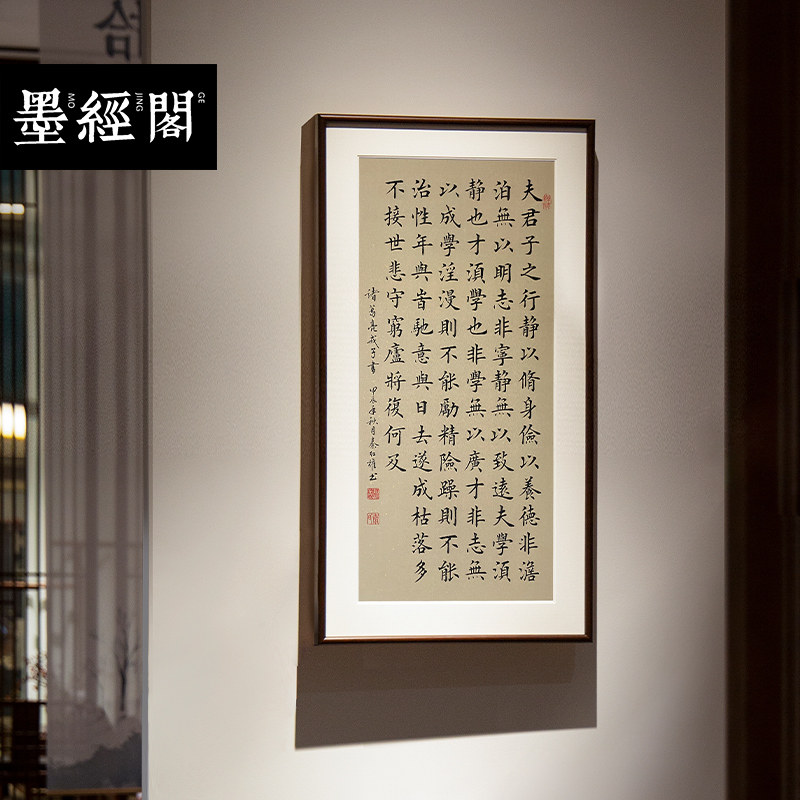 墨經閣
MO JING GE
夫君子之行静以脩身儉以養德非澹
泊無以明志非寧静無以致遠夫學湏
静也才湏學也非學無以廣才非志無
以成學淫漫則不能勵精險躁則不能
治性年與旹馳意與日去遂成枯落多
不接世悲守窮廬將復何及
諸葛亮戒子書 甲辰年秋月秦